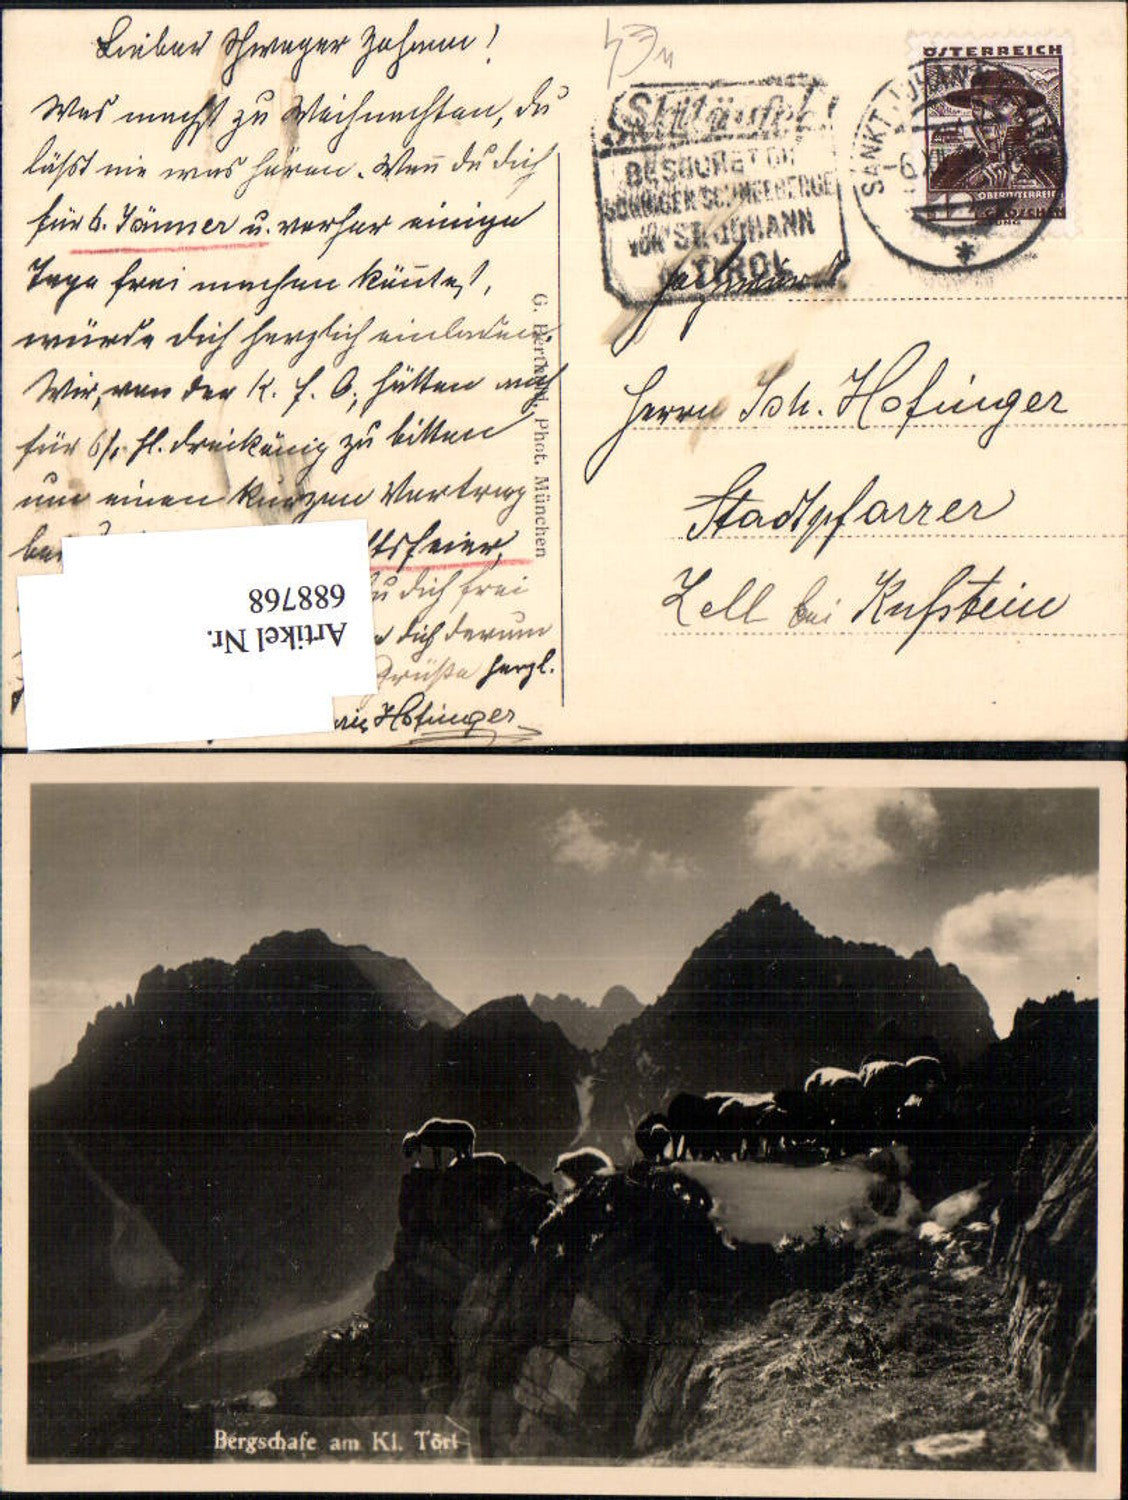 Lieber Schwager Johann!
Was machst zu Weihnachten, du
läßt nie was hören. Wenn du dich
für 6. Jänner u. vorher einige
Tage frei machen könntest,
würde dich herzlich einladen.
Wir, von der K. f. O., hätten auch
für 6/1 hl. Dreikönig zu bitten
um einen kurzen Vortrag
bei
tsfeier,
du dich frei
dich darum
Grüße herzl.
Hofinger
G. Phot. München
Artikel Nr.
688768
Skiläufer!
BESUCHET DIE
SONNIGEN SCHNEEBERGE
VON ST. JOHANN
TIROL
SANKT JOHANN
-6.XII
ÖSTERREICH
OBERÖSTERREICH
GROSCHEN
Herrn Joh. Hofinger
Stadtpfarrer
Zell bei Kufstein
Bergschafe am Kl. Törl